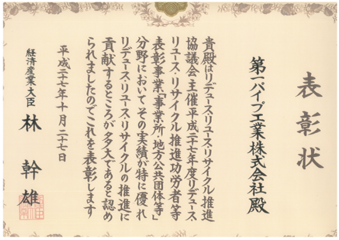 表彰状
第一パイプ工業株式会社殿
貴殿はリデュースリユース・リサイクル推進
協議会主催平成二十七年度リデュース
リユース・リサイクル推進功労者等
表彰事業「事業所・地方公共団体等」
分野においてその実績が特に優れ
リデュース・リユース・リサイクルの推進に
貢献するところが多大であると認め
られましたのでこれを表彰します
平成二十七年十月二十七日
経済産業大臣 林幹雄